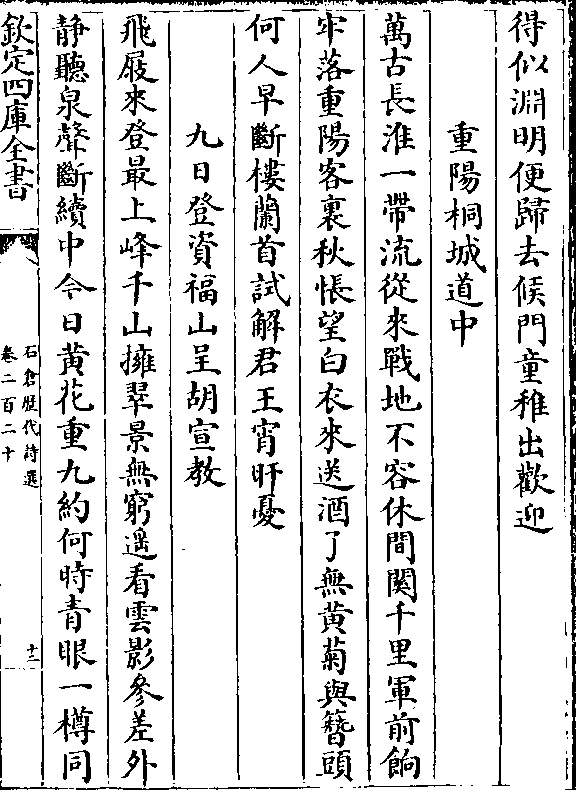 得似淵明便歸去候門童稚出歡迎
重陽桐城道中
萬古長淮一帶流從來戰地不容休間関千里軍前餉
牢落重陽客裏秋悵望白衣來送酒了無黄菊與簪頭
何人早斷樓蘭首試解君王宵旰憂
九日登資福山呈胡宣教
飛屐來登最上峰千山擁翠景無窮遥看雲影參差外
静聽泉聲斷續中今日黄花重九約何時青眼一樽同
欽定四庫全書
石倉歷代詩選
卷二百二十
十二